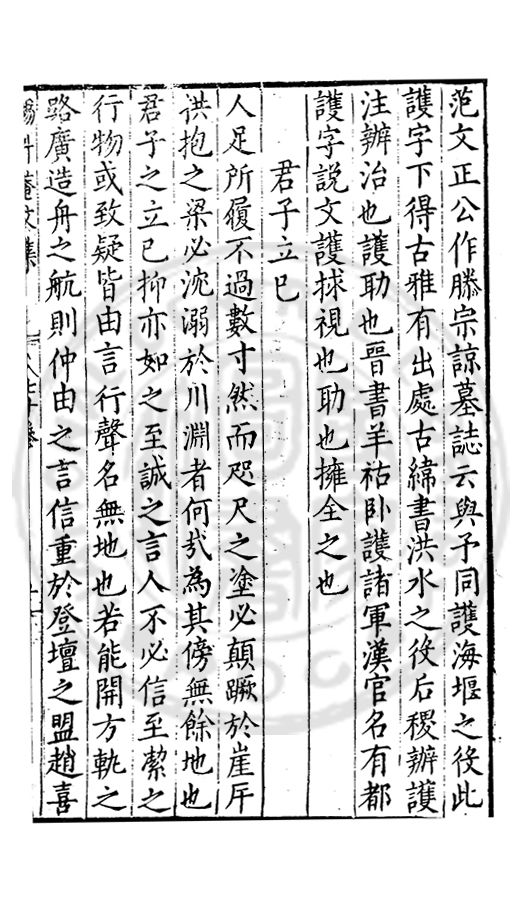 范文正公作滕宗諒墓誌云與予同護海堰之役此
護字下得古雅有出處古緯書洪水之役后稷辦護
注辦治也護助也晉書羊祜卧護諸軍漢官名有都
護字說文護捄視也助也擁全之也
君子立己
人足所履不過數寸然而咫尺之塗必顛蹶於崖岸
拱抱之梁必沈溺於川淵者何㢤為其傍無餘地也
君子之立己抑亦如之至誠之言人不必信至潔之
行物或致疑皆由言行聲名無地也若能開方軌之
路廣造舟之航則仲由之言信重於登壇之盟趙喜